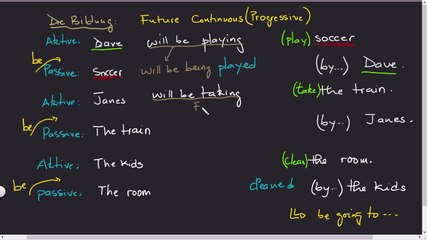 Die Bildung: Future Continuous (Progressive)
Aktive: Dave will be playing (play) soccer
be
Passive: Soccer will be being played (by...) Dave.
Aktive: Janes will be taking (take) the train.
be
Passive: The train (by...) Janes.
Aktive: The kids (clean) the room.
be
passive: The room cleaned (by...) the kids
to be going to ...